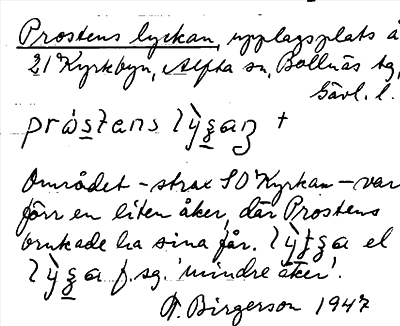 Prostens lyckan, upplagsplats å
21 Kyrkbyn, Alfta sn, Bollnäs tg,
Gävl. l.
området - strax SO Kyrkan - var
förr en liten åker, där Prostens
brukade ha sina får. el
f. sg. 'mindre åker'.
Birgerson 1947